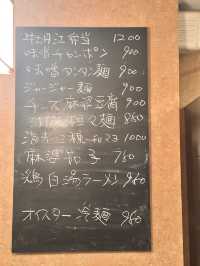 牡丹江弁当 1200
味噌チャンポン 900
味噌タンタン麺 900
ジャージャー麺 900
チーズ麻婆豆腐 900
担々麺 850
1000
麻婆茄子 750
鶏白湯ラーメン 950
オイスター冷麺 950